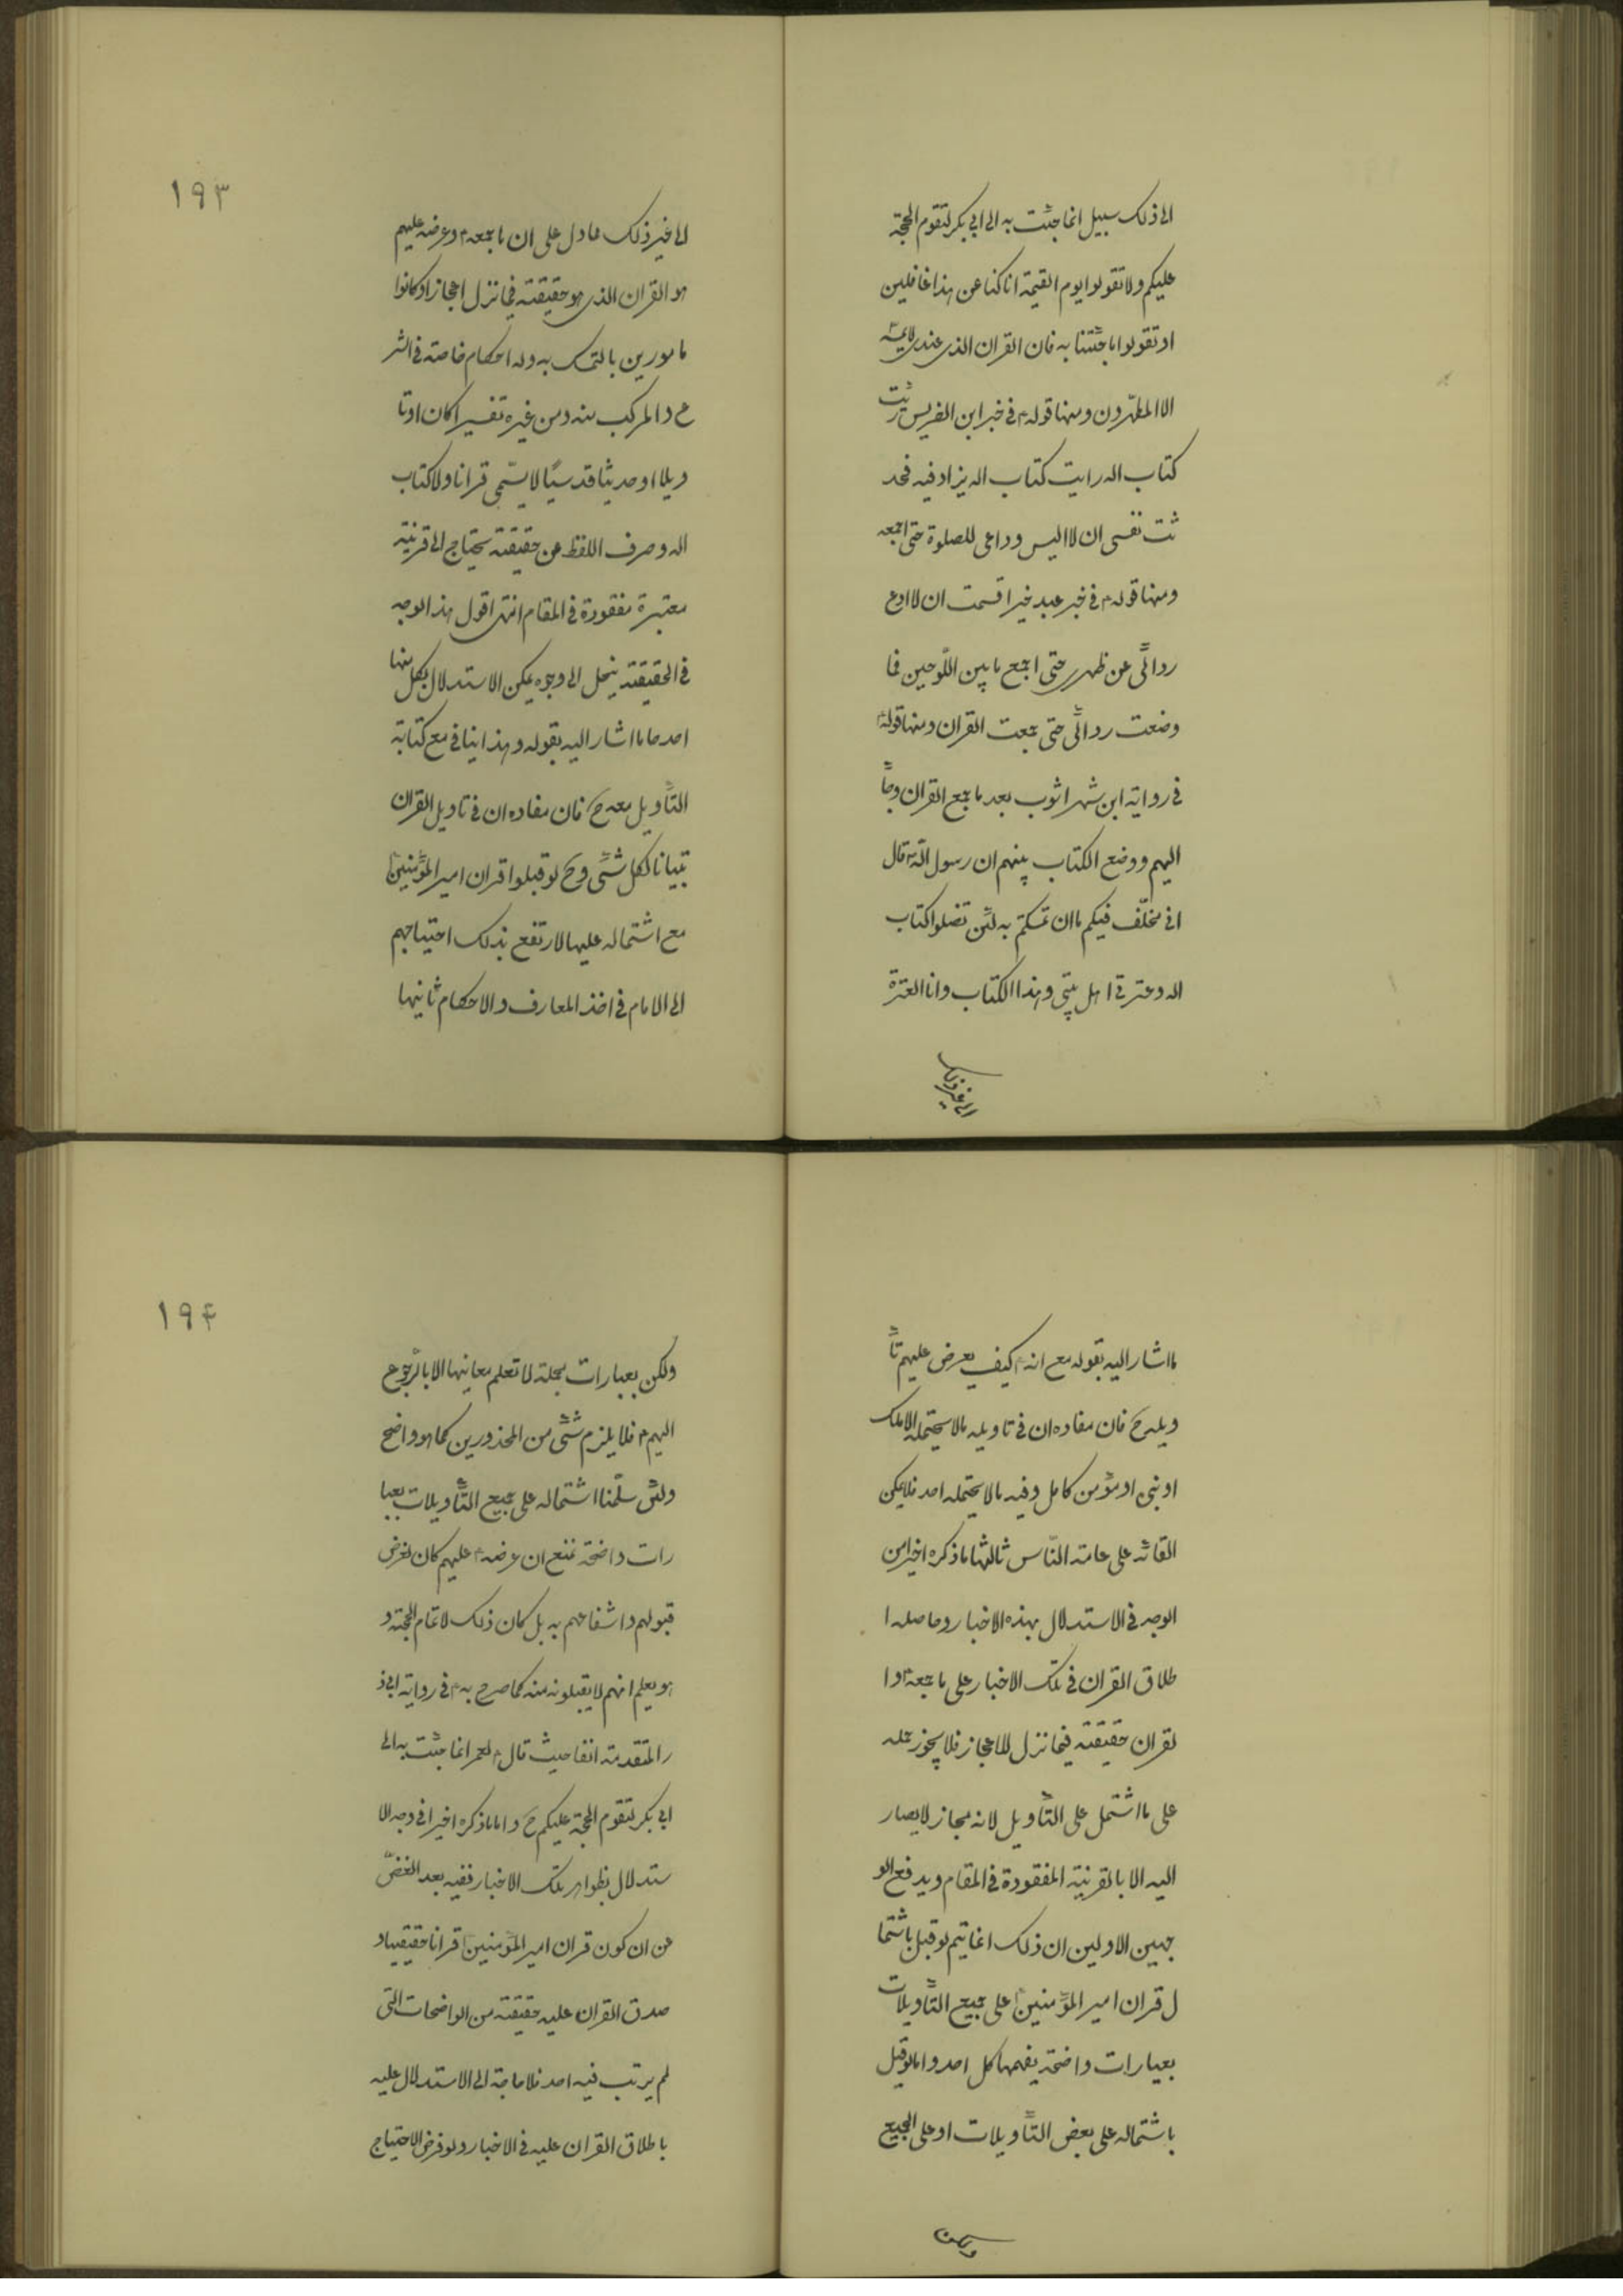 الى ذلك سبيل انما جئت به الى ابى بكر لتقوم الحجة
عليكم ولا تقولوا يوم القيمة انا كنا عن هذا غافلين
او تقولوا ما جئتنا به فان القران الذى عندى لا يمسه
الا المطهرون ومنها قوله ع فى خبر ابن الضريس رئيت
كتاب اله رايت كتاب اله يزاد فيه فحد
ثت نفسى ان لا البس ردائى للصلوة حتى اجمعه
ومنها قوله ع فى خبر عبد خير اقسمت ان لا ادع
ردائى عن ظهرى حتى اجمع ما بين اللوحين فما
وضعت ردائى حتى جمعت القران ومنها قوله
فى رواية ابن شهراشوب بعد ما جمع القران وجاً
اليهم ووضع الكتاب بينهم ان رسول الله قال
انى مخلّف فيكم ما ان تمسكتم به لئن تضلوا كتاب
اله وعترتى اهل بيتى وهذا الكتاب وانا العترة
الى غير ذلك
١٩٣
الى غير ذلك مما دل على ان ما جمعه ع وعرضه عليهم
هو القران الذى هو حقيقته فيما نزل اعجازا وكانوا
مامورين بالتمسك به وله احكام خاصة فى الشر
ع والمركب منه ومن غيره تفسيرا كان او تا
ويلا او حديثا قدسيًا لا يسمّى قرانا ولا كتاب
اله وصرف اللفظ عن حقيقته يحتاج الى قرينة
معتبرة مفقودة فى المقام انتهى اقول هذا الوجه
فى الحقيقة ينحل الى وجوه يمكن الاستدلال بكل منها
احدها ما اشار اليه بقوله وهذا ينافى مع كتابة
التأويل معه ح فان مفاده ان فى تاويل القران
تبيانا لكل شئى وح لو قبلوا قران امير المؤمنين
مع اشتماله عليها لارتفع بذلك احتياجهم
الى الامام فى اخذ المعارف والاحكام ثانيها
ما اشار اليه بقوله مع انه ع كيف يعرض عليهم تأ
ويله ح فان مفاده ان فى تاويله ما لا يحتمله الا ملك
او نبى او مؤمن كامل وفيه ما لا يحتمله احد فلا يمكن
القائه على عامة النّاس ثالثها ما ذكره اخيرا من
الوجه فى الاستدلال بهذه الاخبار وحاصله ا
طلاق القران فى تلك الاخبار على ما جمعه ع وا
لقران حقيقته فيما نزل للاعجاز فلا يجوز حمله
على ما اشتمل على التأويل لانه مجاز لا يصار
اليه الا بالقرينة المفقودة فى المقام ويدفع الو
جهين الاولين ان ذلك انما يتم لو قيل باشتما
ل قران امير المؤمنين على جميع التأويلات
بعبارات واضحة يفهمها كل احد واما لو قيل
باشتماله على بعض التأويلات او على الجميع
ولكن
١٩۴
ولكن بعبارات مجملة لا تعلم معانيها الا بالرّجوع
اليهم ع فلا يلزم شئى من المحذورين كما هو واضح
ولئن سلّمنا اشتماله على جميع التأويلات بعبا
رات واضحة نمنع ان عرضه ع عليهم كان لغرض
قبولهم وانتفاعهم به بل كان ذلك لاتمام الحجة و
هو يعلم انهم لا يقبلونه منه كما صرح به ع فى رواية ابى ذ
ر المتقدمة انفا حيث قال ع لعمر انما جئت به الى
ابى بكر لتقوم الحجة عليكم ح واما ما ذكره اخيرا فى وجه الا
ستدلال بظواهر تلك الاخبار ففيه بعد الغضّ
عن ان كون قران امير المؤمنين قرانا حقيقيا و
صدق القران عليه حقيقة من الواضحات التى
لم يرتب فيه احد فلا حاجة الى الاستدلال عليه
باطلاق القران عليه فى الاخبار ولو فرض الاحتياج